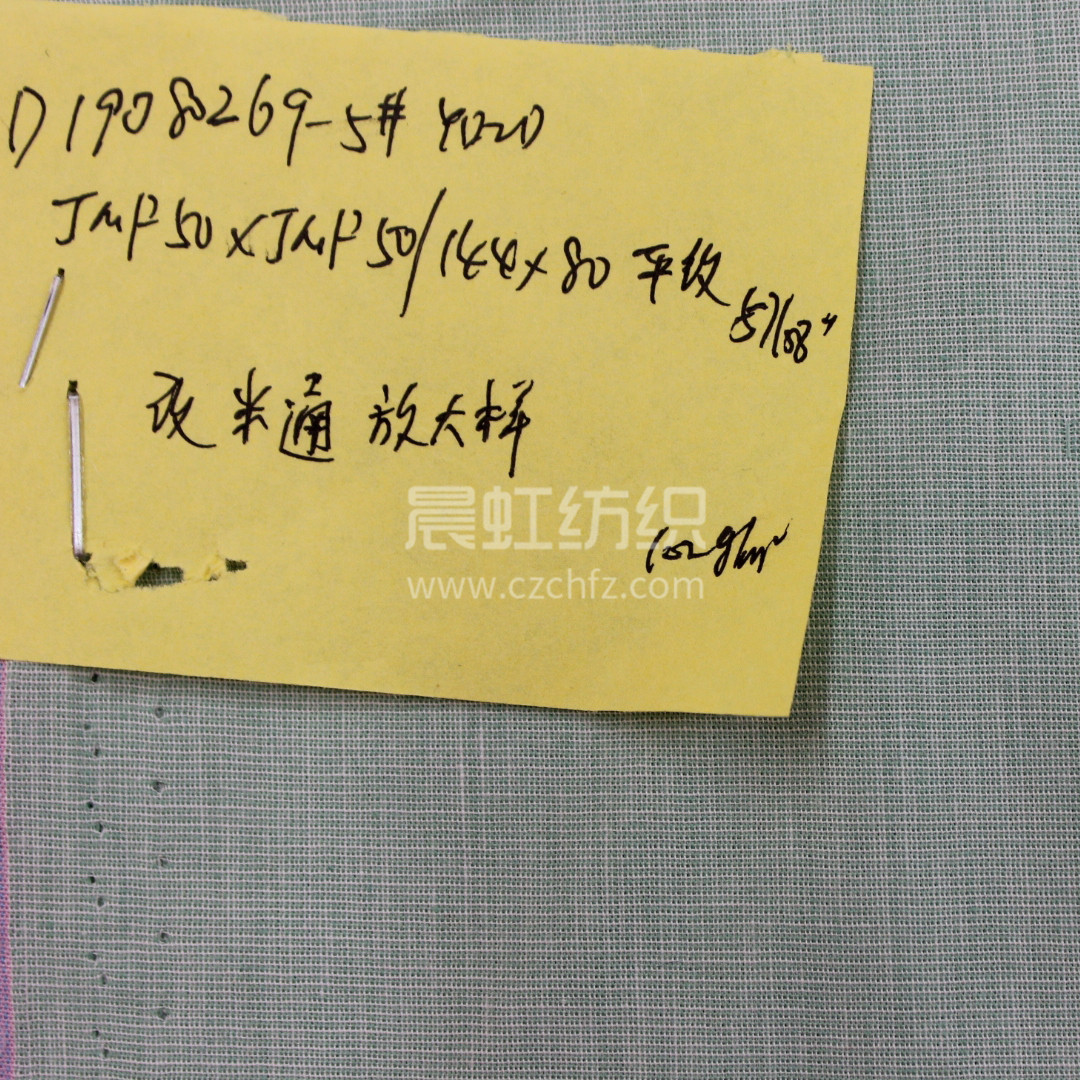 D1908269-5# 4020
JMF50×JMF50/144×80 平纹 57/58"
改米通 放大样
晨虹纺织
102g/m²
www.czchfz.com